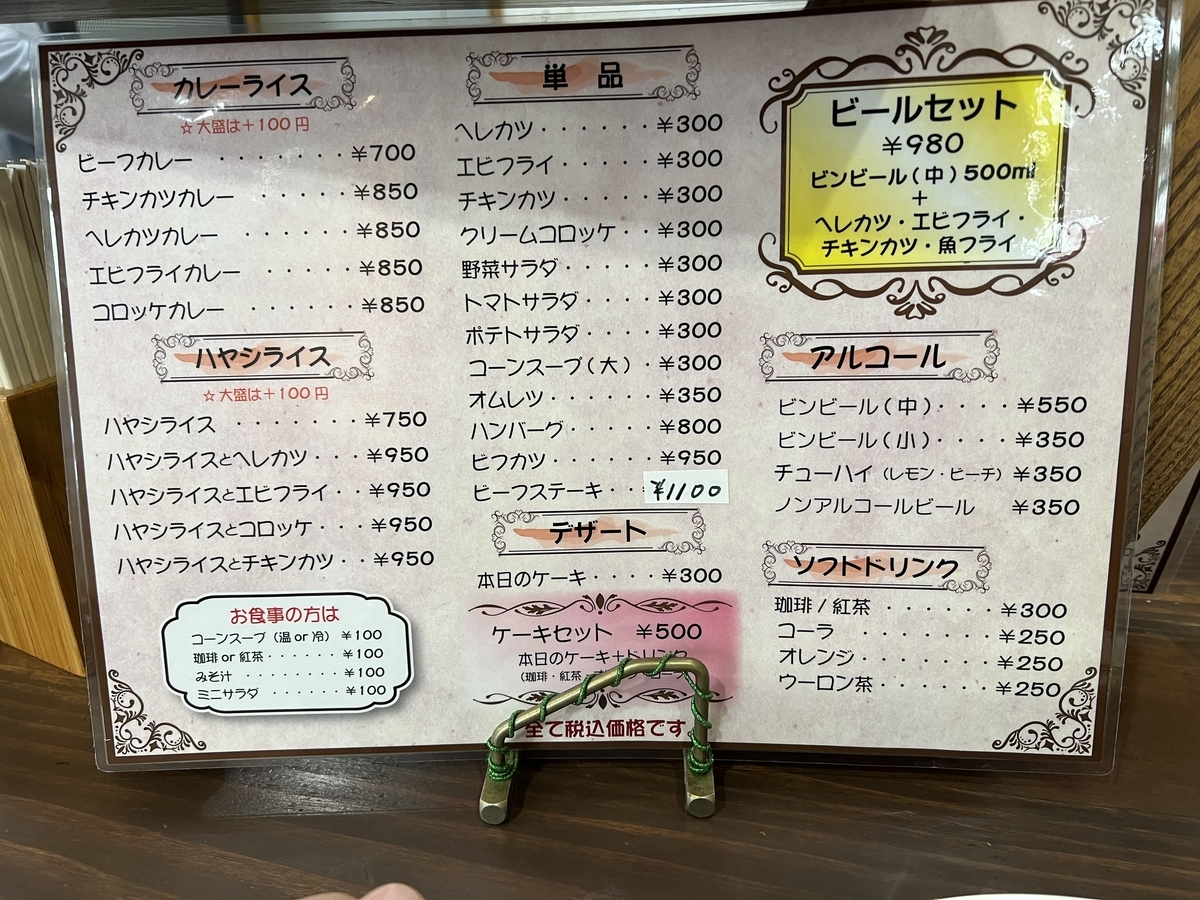 カレーライス
☆大盛は＋100円
ビーフカレー ・・・・・・・¥700
チキンカツカレー ・・・・・¥850
ヘレカツカレー ・・・・・・¥850
エビフライカレー ・・・・・¥850
コロッケカレー ・・・・・・¥850
ハヤシライス
☆大盛は＋100円
ハヤシライス ・・・・・・・¥750
ハヤシライスとヘレカツ・・・¥950
ハヤシライスとエビフライ・・¥950
ハヤシライスとコロッケ・・・¥950
ハヤシライスとチキンカツ・・¥950
お食事の方は
コーンスープ（温or冷）¥100
珈琲or紅茶・・・・・・¥100
みそ汁 ・・・・・・・・¥100
ミニサラダ ・・・・・・¥100
単品
ヘレカツ・・・・・・¥300
エビフライ・・・・・¥300
チキンカツ・・・・・¥300
クリームコロッケ・・¥300
野菜サラダ・・・・・¥300
トマトサラダ・・・・¥300
ポテトサラダ・・・・¥300
コーンスープ（大）・¥300
オムレツ・・・・・・¥350
ハンバーグ・・・・・¥800
ビフカツ・・・・・・¥950
ビーフステーキ・・¥1100
デザート
本日のケーキ・・・・¥300
ケーキセット ¥500
本日のケーキ＋ドリンク
（珈琲・紅茶
全て税込価格です
ビールセット
¥980
ビンビール（中）500ml
＋
ヘレカツ・エビフライ・
チキンカツ・魚フライ
アルコール
ビンビール（中）・・・・¥550
ビンビール（小）・・・・¥350
チューハイ（レモン・ピーチ）¥350
ノンアルコールビール ¥350
ソフトドリンク
珈琲/紅茶 ・・・・・・¥300
コーラ ・・・・・・・¥250
オレンジ・・・・・・・¥250
ウーロン茶・・・・・・¥250